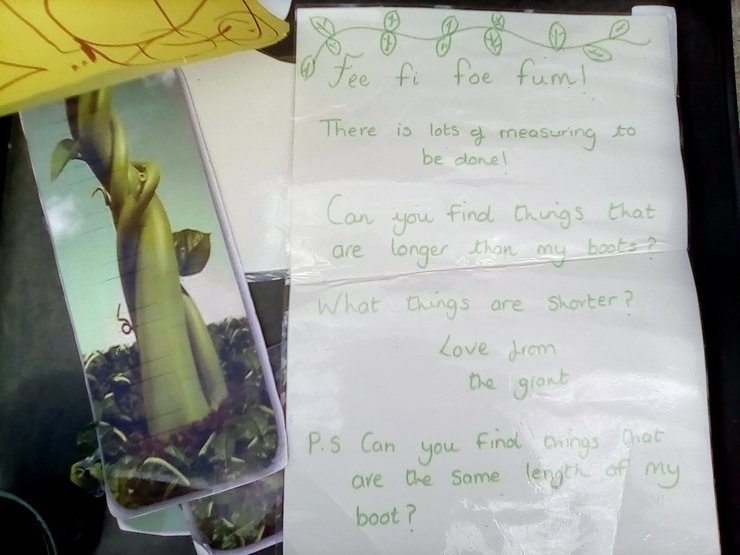 Fee fi foe fum!
There is lots of measuring to
be done!
Can you find things that
are longer than my boots?
What things are shorter?
Love from
the giant
P.S Can you find things that
are the same length of my
boot?